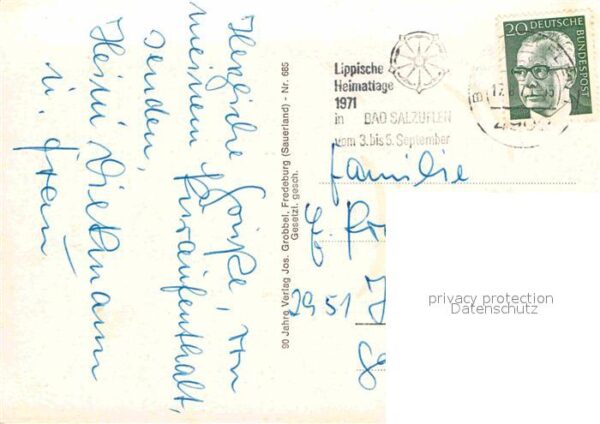 Herzliche Grüße, von
meinem Kuraufenthalt,
senden,
Heini Dickmann
u. Frau
90 Jahre Verlag Jos. Grobbel, Fredeburg (Sauerland) - Nr. 685
Gesetzl. gesch.
Lippische
Heimattage
1971
in BAD SALZUFLEN
vom 3. bis 5. September
20 DEUTSCHE
BUNDESPOST
Familie
2951
privacy protection
Datenschutz